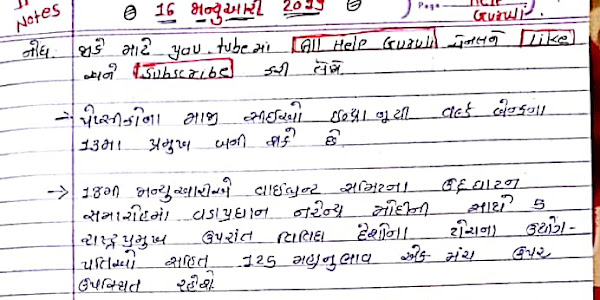 Notes
16 જાન્યુઆરી 2019
Page
Help
Guru).
નોંધ જોકે માટે you.tubeમાં All Help Guru ચેનલને Like
અને Subscribe કરી લેજો
→ પેપ્સીકોના માજી સીઈઓ ઇન્દ્રા નૂયી વર્લ્ડ બેન્કના
13માં પ્રમુખ બની શકે છે.
→ 18મી જાન્યુઆરીએ વાઇબ્રન્ટ સમિટના ઉદ્દઘાટન
સમારોહમાં વડાપ્રધાન નરેન્દ્ર મોદીની સાથે 5
રાષ્ટ્રપ્રમુખ ઉપરાંત વિવિધ દેશોના ટોચના ઉદ્યોગ-
પતિઓ સહિત 125 મહાનુભાવ એક મંચ ઉપર
ઉપસ્થિત રહેશે